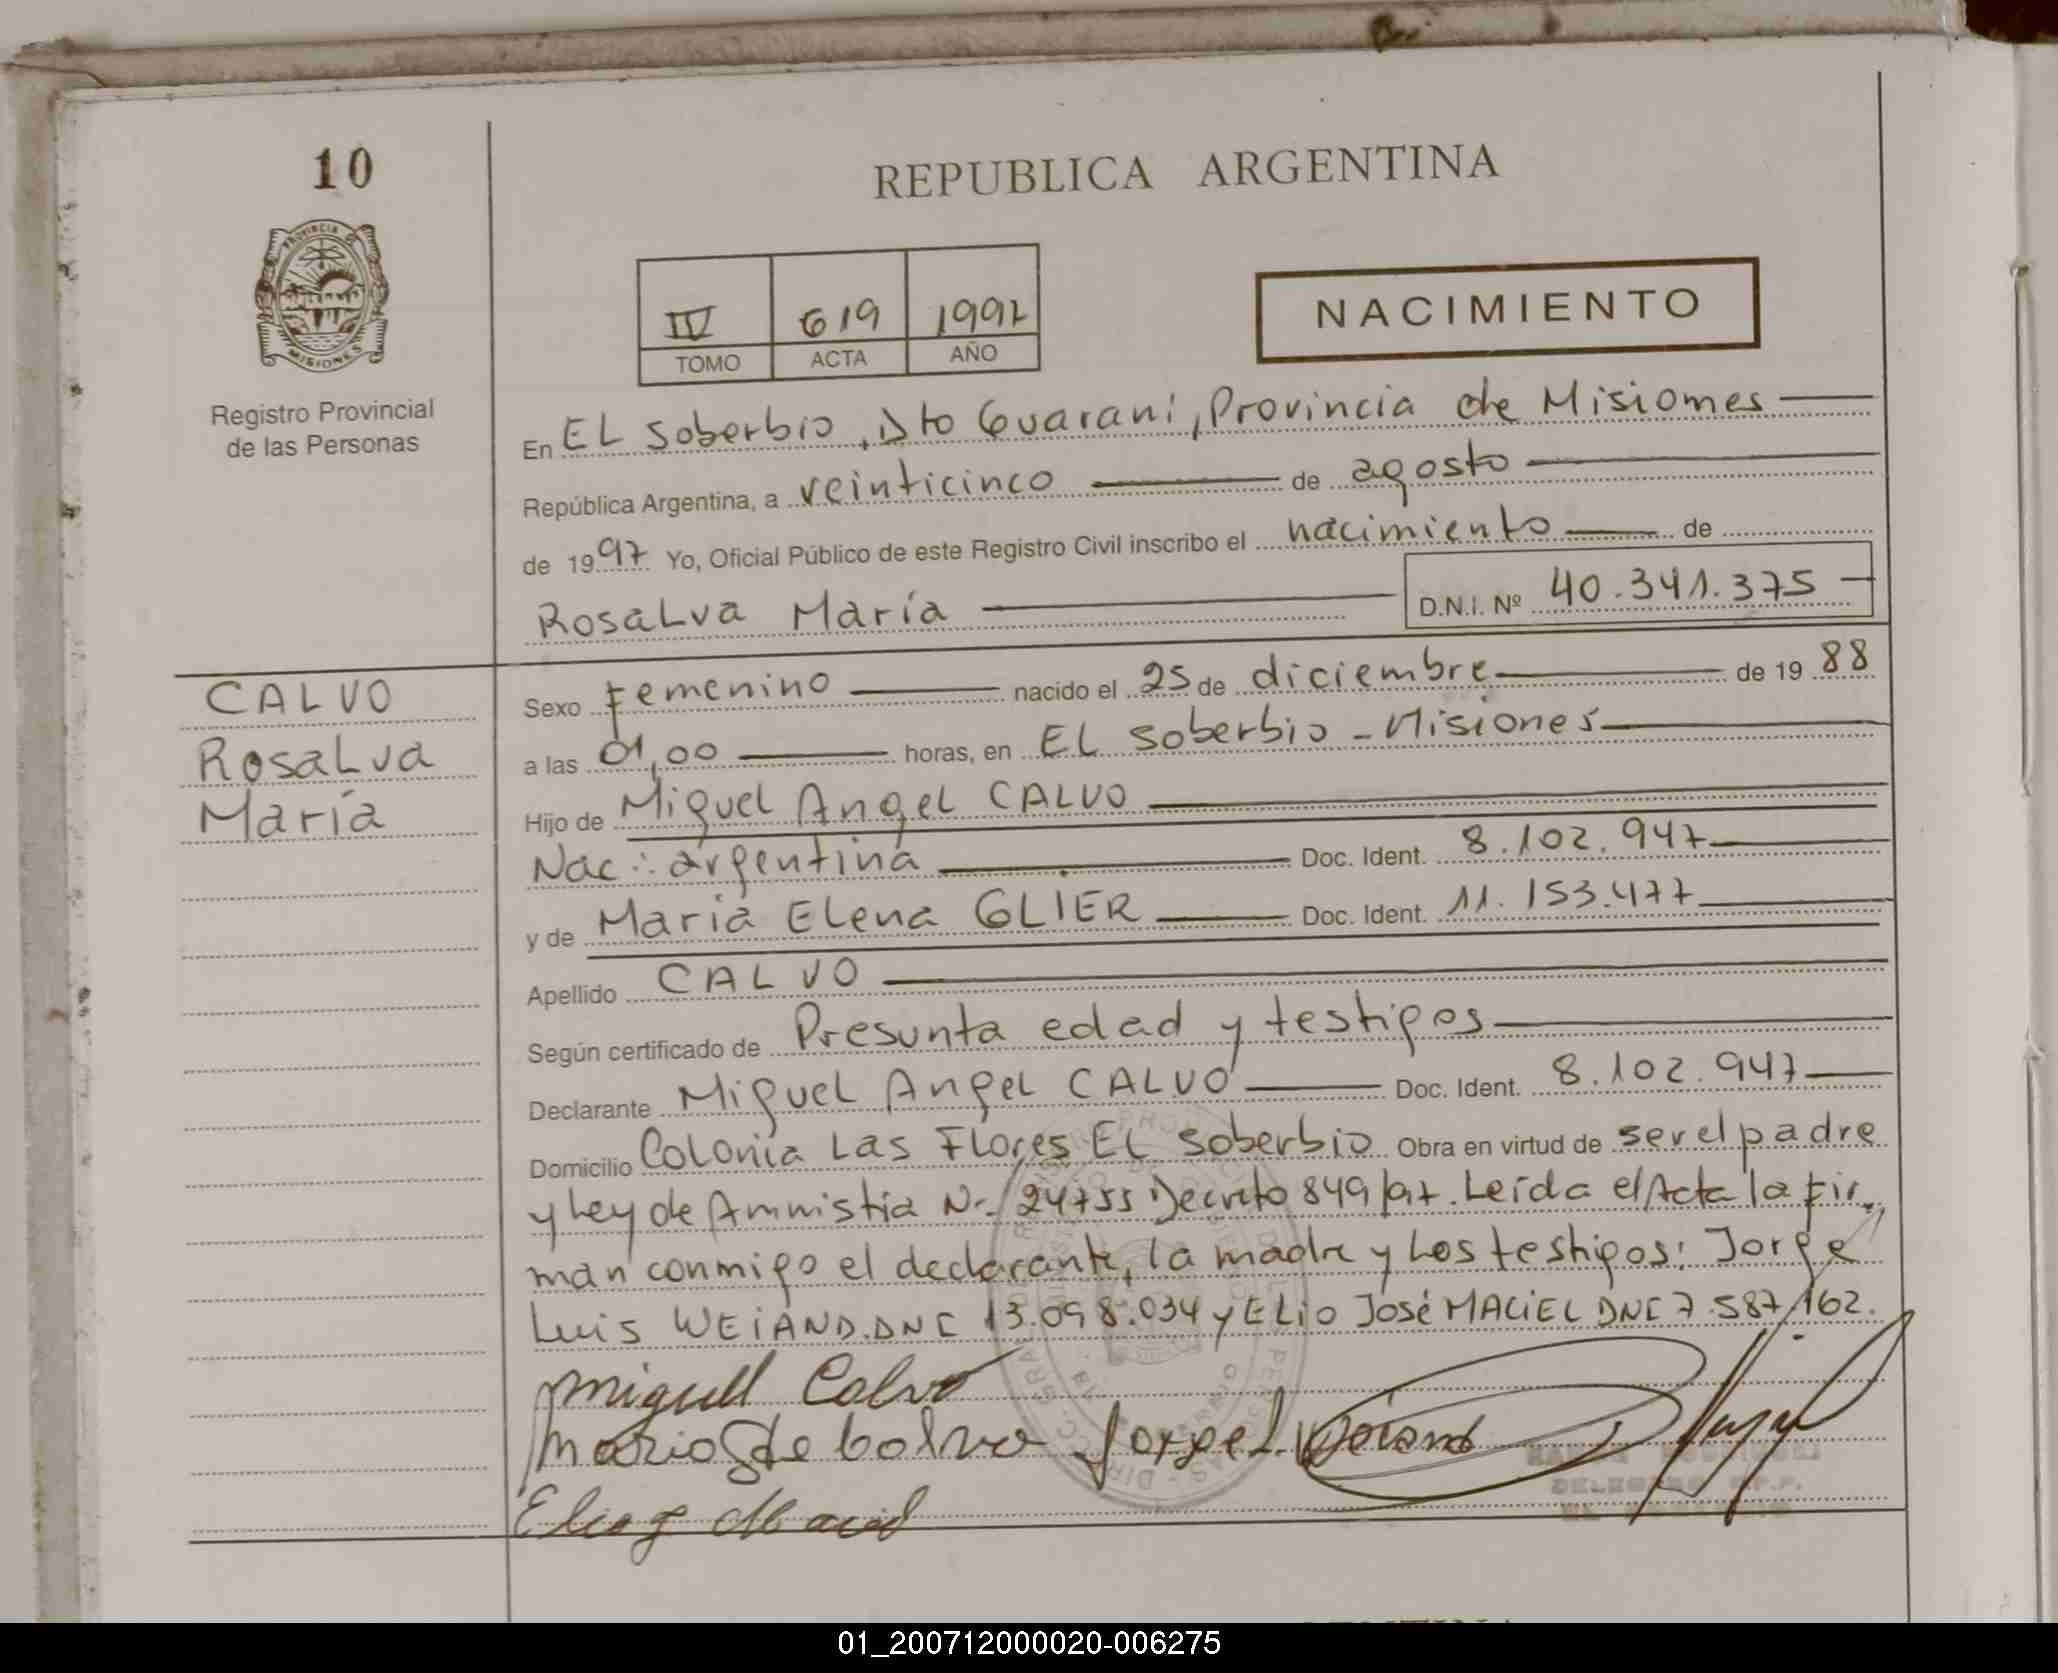 10
REPUBLICA ARGENTINA
PROVINCIA DE
MISIONES
Registro Provincial
de las Personas
IV 619 1997
TOMO ACTA AÑO
NACIMIENTO
En EL Soberbio, Dto Guaraní, Provincia de Misiones
República Argentina, a veinticinco de agosto
de 1997 Yo, Oficial Público de este Registro Civil inscribo el nacimiento de
Rosalva María D.N.I. Nº 40.341.375
CALVO
Rosalva
María
Sexo Femenino nacido el 25 de diciembre de 1988
a las 01,00 horas, en EL Soberbio - Misiones
Hijo de Miguel Angel CALVO
Nac.: argentina Doc. Ident. 8.102.947
y de María Elena GLIER Doc. Ident. 11.153.477
Apellido CALVO
Según certificado de Presunta edad y testigos
Declarante Miguel Angel CALVO Doc. Ident. 8.102.947
Domicilio Colonia Las Flores EL Soberbio Obra en virtud de ser el padre
y Ley de Amnistía Nº 24755 Decreto 849/97. Leída el Acta la fir
man conmigo el declarante, la madre y los testigos: Jorge
Luis WEIAND. DNI 13.098.034 y ELio José MACIEL DNI 7.587.162.
Miguel Calvo
Jorge L. Weiand
01_200712000020-006275